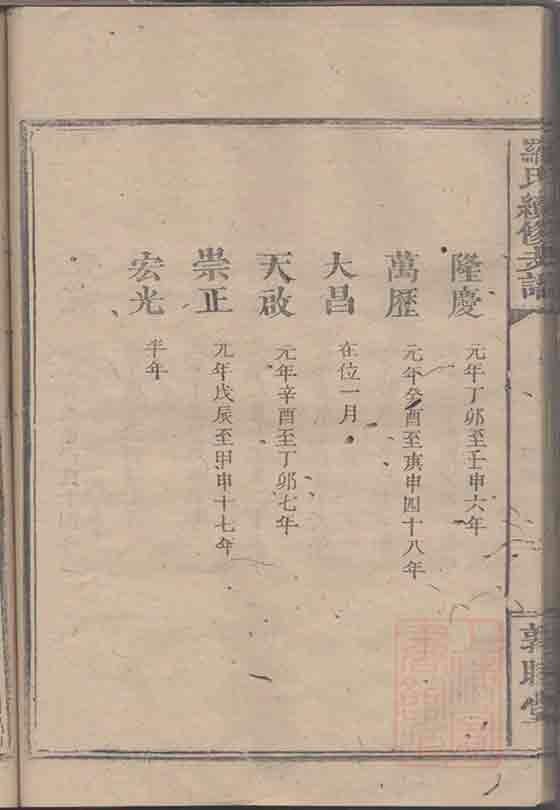 羅氏續修支譜
敦睦堂
隆慶 元年丁卯至壬申六年
萬歷 元年癸酉至庚申四十八年
大昌 在位一月
天啟 元年辛酉至丁卯七年
崇正 元年戊辰至甲申十七年
宏光 半年